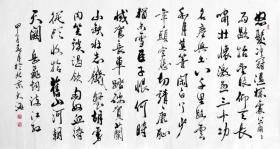 怒髮衝冠憑欄處瀟瀟
雨歇抬望眼仰天長
嘯壯懷激烈三十功
名塵與土八千里路雲
和月莫等閒白了少
年頭空悲切靖康恥
猶未雪臣子恨何時
滅駕長車踏破賀蘭
山缺壯志飢餐胡虜
肉笑談渴飲匈奴血待
從頭收拾舊山河朝
天闕 岳飛詞滿江紅
甲午年 月於北京